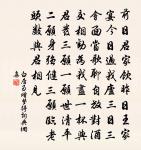 前日君家飲昨日王家
宴今日過我廬三日三
會面當歌聊自放對酒
交相勸為我盡一杯與
君發三願一願世清平
二願身強健三願臨老
頭數與君相見
白居易贈夢得詩